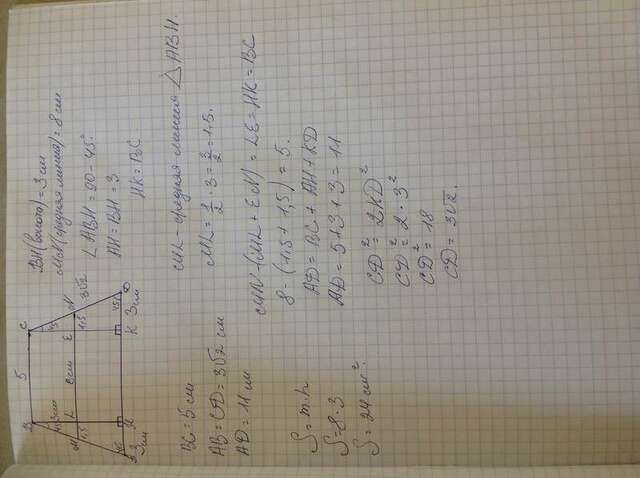 5
B C
45° 3см 45°
M L 8 см E N
1,5 1,5 3√2
45° 45°
A 3см H K 3см D
BH (высота) = 3 см
MN (средняя линия) = 8 см
∠ABH = 90 - 45°
AH = BH = 3
HK = BC
ML - средняя линия △ ABH.
ML = 1/2 · 3 = 3/2 = 1.5.
BC = 5 см
AB = CD = 3√2 см
AD = 11 см
MN - (ML + EN) = LE = HK = BC
8 - (1,5 + 1,5) = 5.
AD = BC + AH + KD
AD = 5 + 3 + 3 = 11
S = m · h
S = 8 · 3
S = 24 см².
CD² = 2KD²
CD² = 2 · 3²
CD² = 18
CD = 3√2.